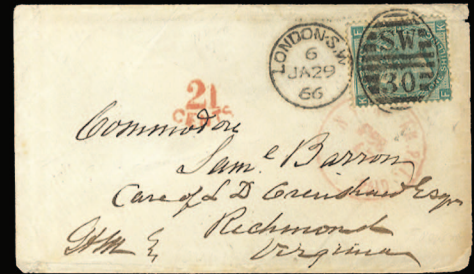 LONDON-S.W
6
JA 29
66
S.W
30
21
CENTS
Commodore
Saml Barron
Care of L D Crenshaw Esqr
Richmond
Virginia